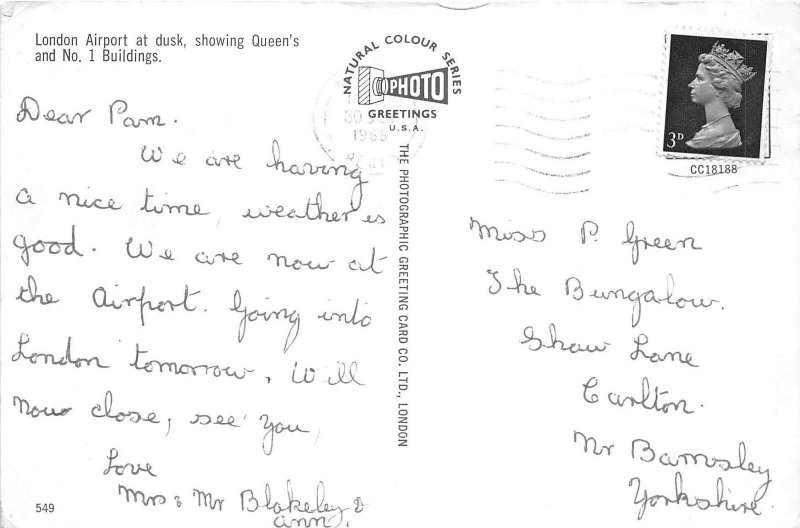 London Airport at dusk, showing Queen's
and No. 1 Buildings.
NATURAL COLOUR SERIES
PHOTO
GREETINGS
U.S.A.
THE PHOTOGRAPHIC GREETING CARD CO. LTD., LONDON
3D
CC18188
Dear Pam.
We are having
a nice time, weather is
good. We are now at
the Airport. Going into
London tomorrow. Will
now close, see you,
Love
Mrs & Mr Blakeley &
ann.
Miss P. Green
The Bungalow.
Shaw Lane
Carlton.
Nr Barnsley
Yorkshire.
549